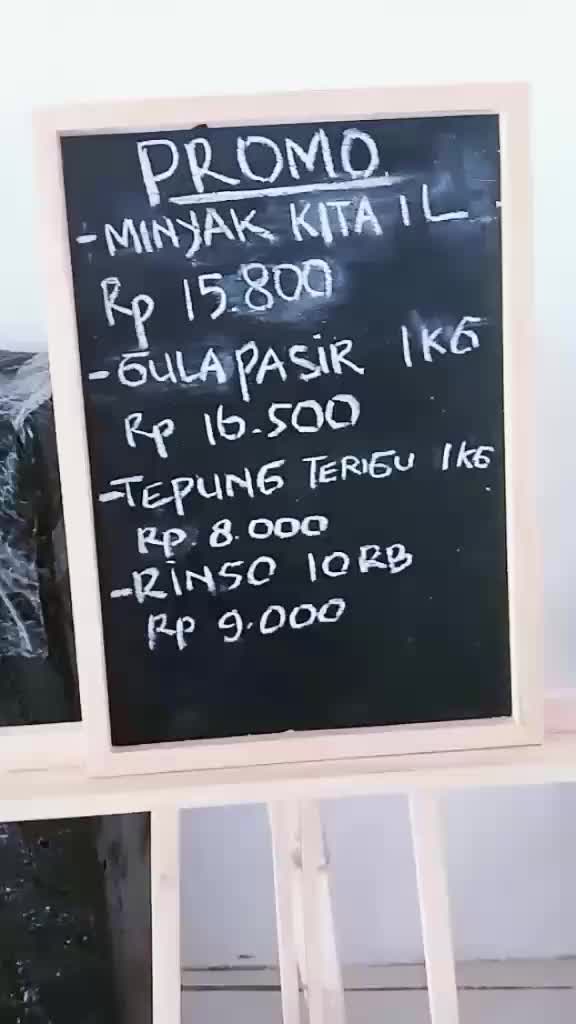 PROMO
- MINYAK KITA 1L
Rp 15.800
- GULA PASIR 1KG
Rp 16.500
- TEPUNG TERIGU 1KG
Rp. 8.000
- RINSO 10RB
Rp 9.000